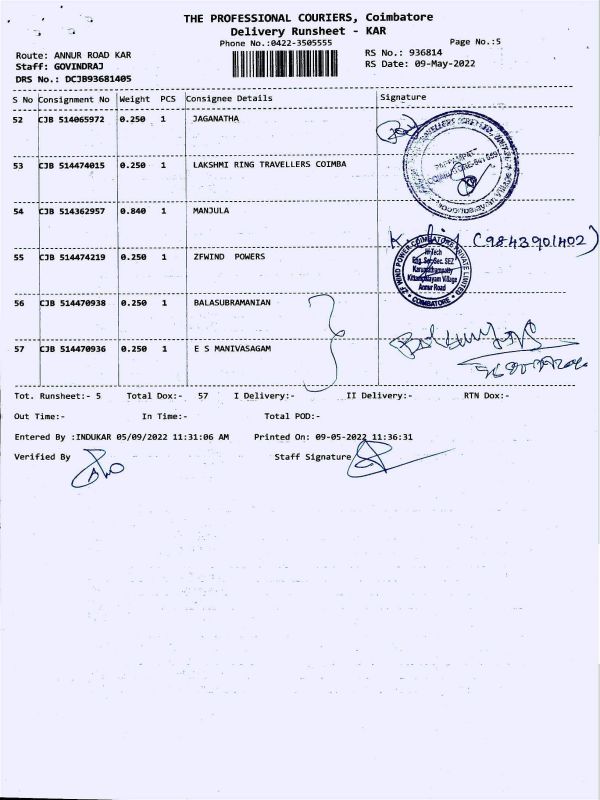 THE PROFESSIONAL COURIERS, Coimbatore
Delivery Runsheet - KAR
Phone No.:0422-3505555
Page No.:5
Route: ANNUR ROAD KAR
RS No.: 936814
Staff: GOVINDRAJ
RS Date: 09-May-2022
DRS No.: DCJB93681405
S No Consignment No Weight PCS Consignee Details Signature
52 CJB 514065972 0.250 1 JAGANATHA
53 CJB 514474015 0.250 1 LAKSHMI RING TRAVELLERS COIMBA
54 CJB 514362957 0.840 1 MANJULA
(9843901402)
55 CJB 514474219 0.250 1 ZFWIND POWERS
ZF WIND POWER COIMBATORE PRIVATE LIMITED
Hi-Tech
Eng. Sec. SEZ
Karumathampatty
Kittampalayam Village
Annur Road
COIMBATORE
56 CJB 514470938 0.250 1 BALASUBRAMANIAN
57 CJB 514470936 0.250 1 E S MANIVASAGAM
Tot. Runsheet:- 5 Total Dox:- 57 I Delivery:- II Delivery:- RTN Dox:-
Out Time:- In Time:- Total POD:-
Entered By :INDUKAR 05/09/2022 11:31:06 AM Printed On: 09-05-2022 11:36:31
Verified By Staff Signature